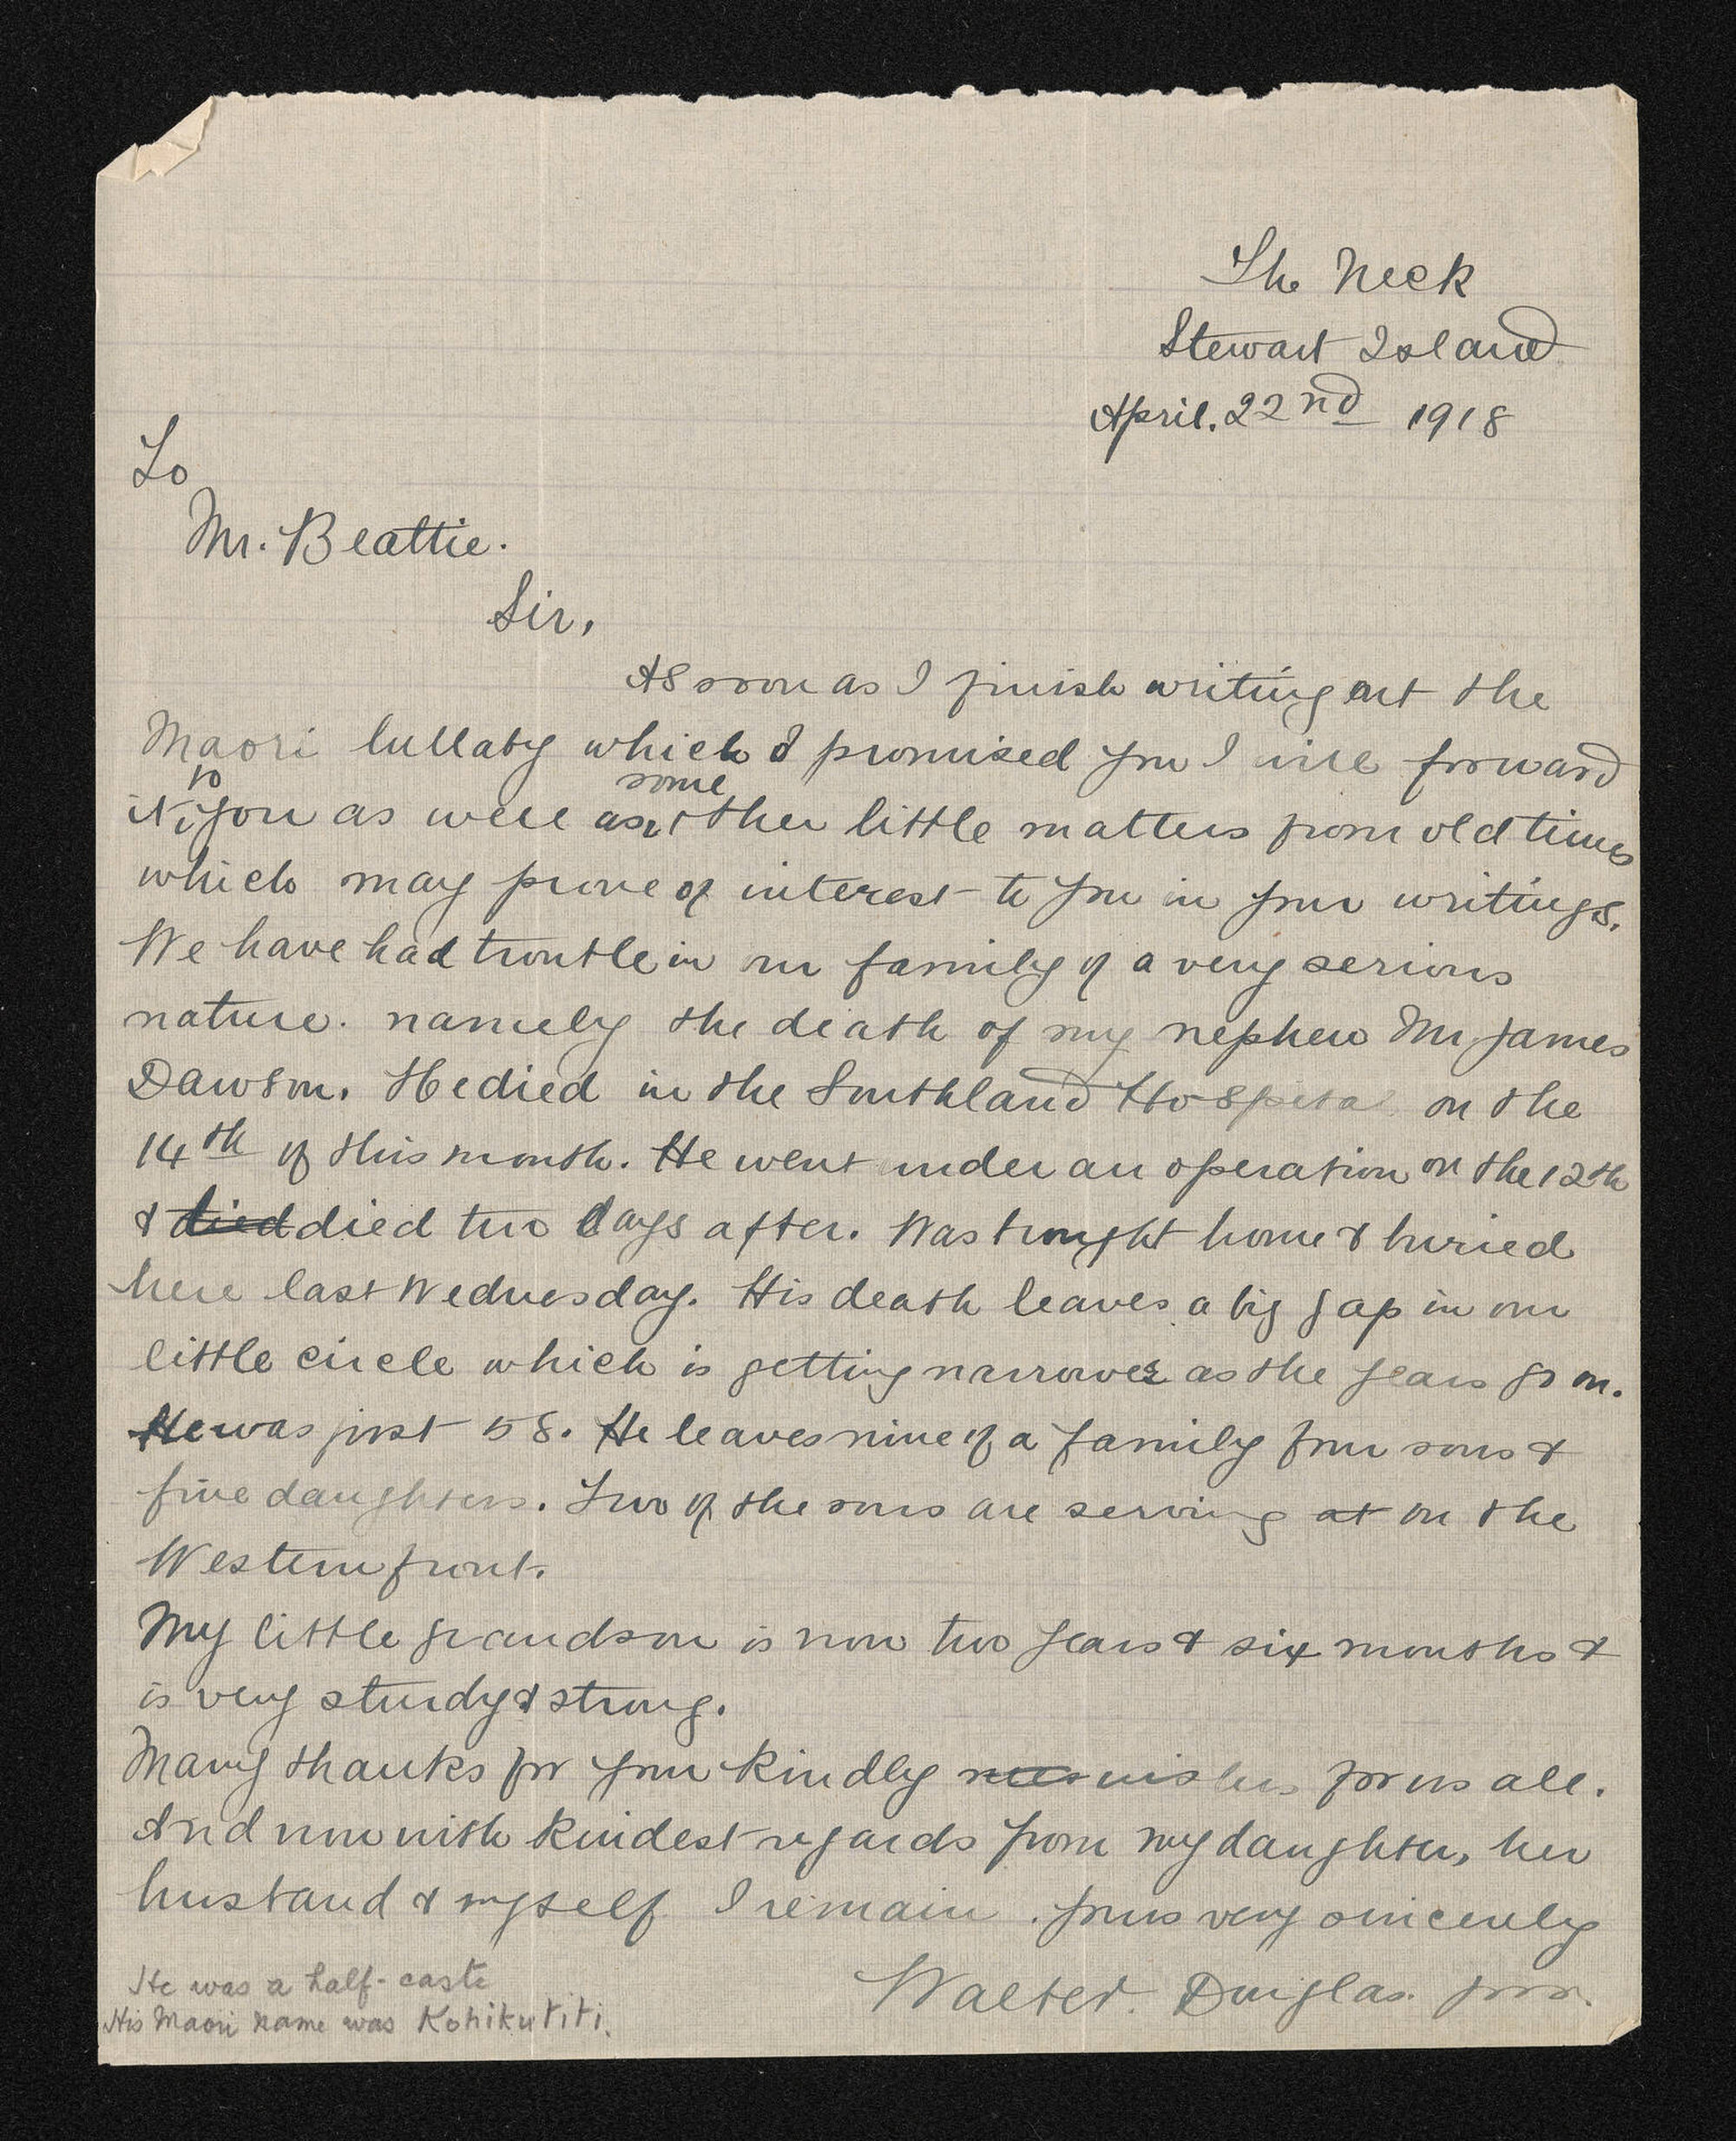 The Neck
Stewart Island
April. 22nd 1918
To
Mr. Beattie.
Sir,
As soon as I finish writing out the
Maori lullaby which I promised you I will forward
it to you as well as some other little matters from old times
which may prove of interest to you in your writings.
We have had trouble in our family of a very serious
nature. namely the death of my nephew Mr James
Dawson. He died in the Southland Hospital on the
14th of this month. He went under an operation on the 12th
& died died two days after. Was brought home & buried
here last Wednesday. His death leaves a big gap in our
little circle which is getting narrower as the years go on.
He was just 58. He leaves nine of a family four sons &
five daughters. Two of the sons are serving at on the
Western front.
My little grandson is now two years & six months &
is very sturdy & strong.
Many thanks for your kindly wishes for us all.
And now with kindest regards from my daughter, her
husband & myself I remain. yours very sincerely
Walter. Douglas.
He was a half-caste
His Maori name was Kohikutiti.